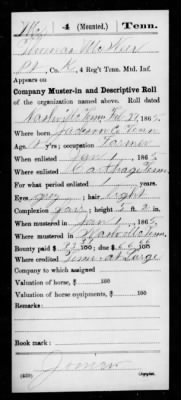 4 (Mounted.) Tenn.
Pvt, Co. K, 4 Reg't Tenn. Mtd. Inf.
Appears on
Company Muster-in and Descriptive Roll
of the organization named above. Roll dated
Nashville Tenn Feb 21, 1865.
Where born Jackson Co Tenn
Age 18 y'rs; occupation Farmer
When enlisted Jan 1, 1865.
Where enlisted Carthage Tenn.
For what period enlisted 1 years.
Eyes grey; hair light
Complexion fair; height 5 ft. in.
When mustered in 1865.
Where mustered in Nashville Tenn.
Bounty paid $ 100; due $ 100
Where credited
Company to which assigned
Valuation of horse, $ 100
Valuation of horse equipments, $ 100
Remarks:
Book mark:
Copyist.